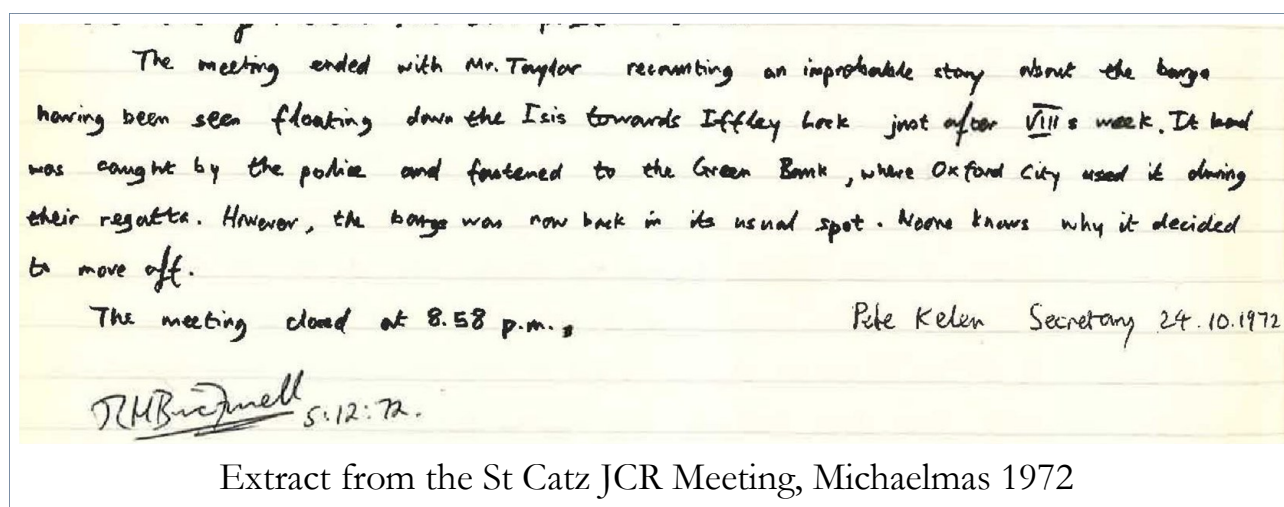 The meeting ended with Mr. Taylor recounting an improbable story about the barge
having been seen floating down the Isis towards Iffley Lock just after VIII s week. It had
was caught by the police and fastened to the Green Bank, where Oxford City used it during
their regatta. However, the barge was now back in its usual spot. Noone knows why it decided
to move off.
The meeting closed at 8.58 p.m.,
Pete Kelen Secretary 24.10.1972
5:12:72.
Extract from the St Catz JCR Meeting, Michaelmas 1972